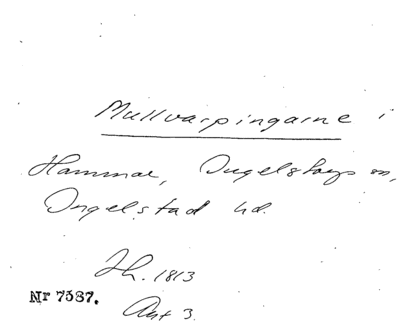 Mullvarpingarne i
Hammar, Ingelstorps sn,
Ingelstad hd.
Th. 1813
Nr 7587.
Avt 3.